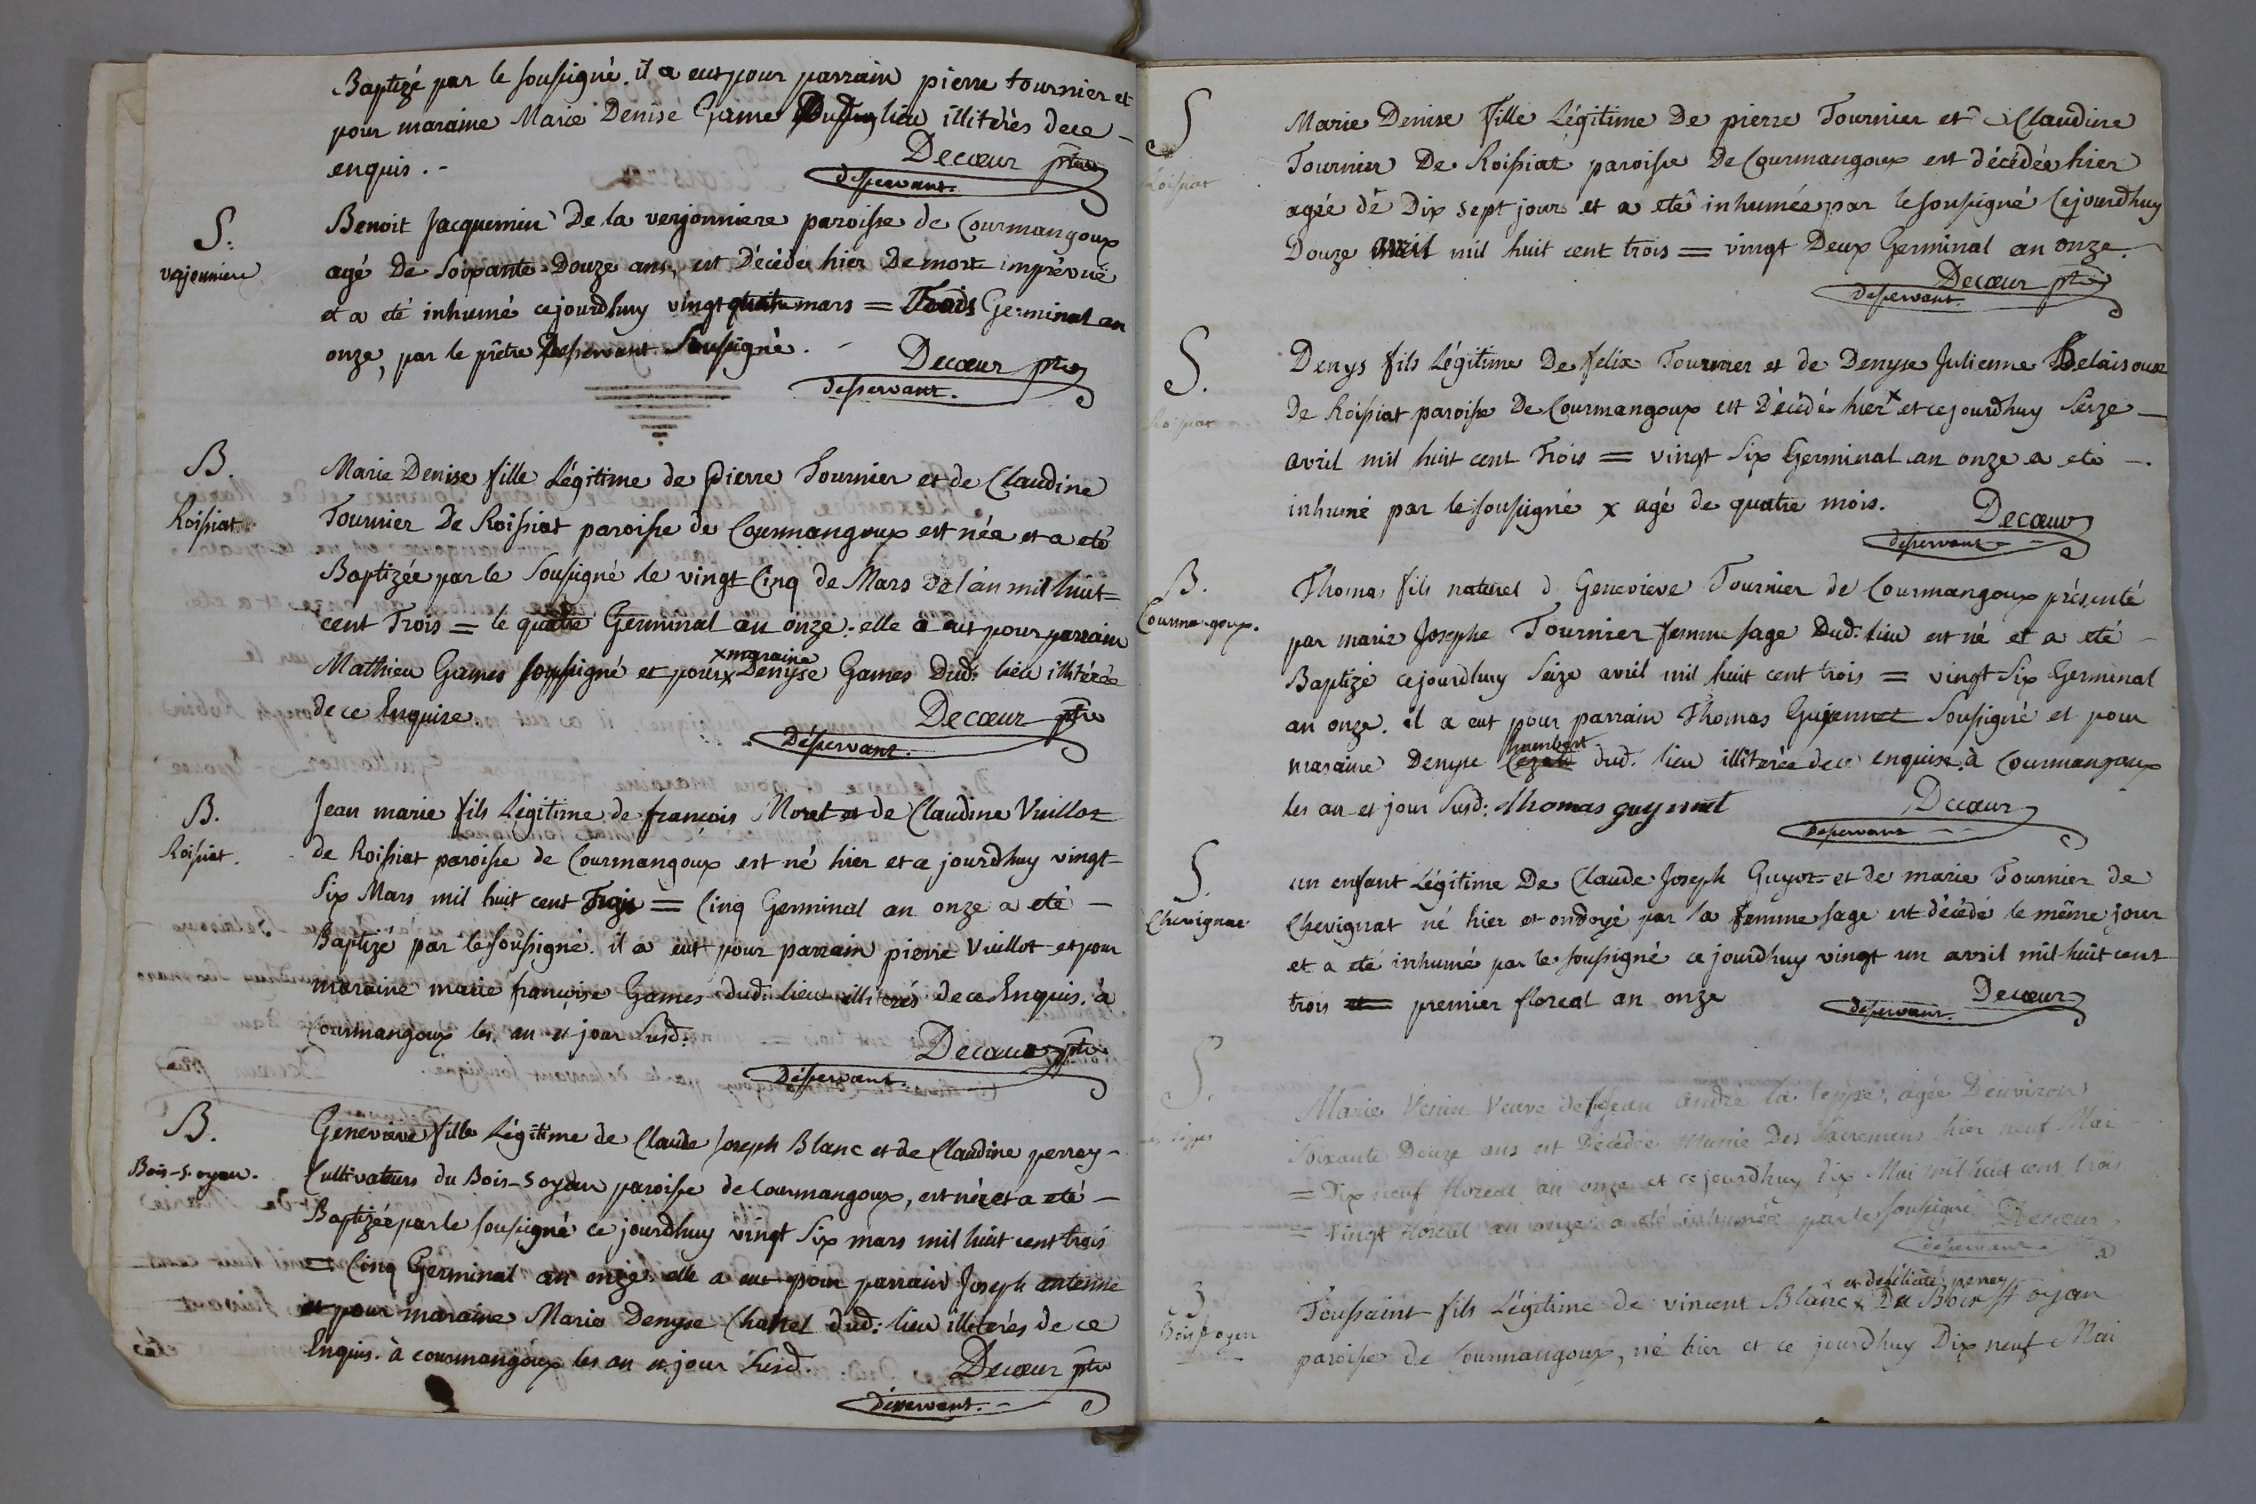 Baptizé par le soussigné. il a eut pour parrain pierre tournier et
pour maraine Marie Denise Game Dud. lieu illiterés de ce
enquis. -
Decœur ptre
desservant.
S.
verjonniere
Benoit Jacquemin De la verjonniere paroisse de Courmangoux
agé De Soixante-Douze ans, est Décédé hier De mort imprévuë
et a eté inhumé cejourdhuy vingt quatre mars = Trois Germinal an
onze, par le prêtre Desservant Soussigné. -
Decœur ptre
desservant.
B.
Roissiat.
Marie Denise fille Légitime de pierre Tournier et de Claudine
Tournier De Roissiat paroisse de Courmangoux est née et a eté
Baptizée par le Soussigné le vingt Cinq de Mars De l'an mil huit=
cent Trois = le quatre Germinal an onze. elle a eut pour parrain
Mathieu Games soussigné et pour x Denyse Games Dud: lieu illitérée
x maraine
de ce Enquise
Decœur ptre
Desservant.
B.
Roissiat.
Jean marie fils Légitime de françois Moret et de Claudine Vuillot
de Roissiat paroisse de Courmangoux est né hier et ce jourdhuy vingt-
Six Mars mil huit cent Trois = Cinq Germinal an onze a eté -
Baptizé par le soussigné. il a eut pour parrain pierre Vuillot et pour
maraine marie françoise Games dud: lieu illiterés de ce Enquis. à
Courmangoux les an et jour Susd:
Decœur ptre
Desservant.
B.
Bois-s.oyan.
Genevieve fille Légitime de Claude Joseph Blanc et de Claudine perrey-
Cultivateurs du Bois-s oyan paroisse de Courmangoux, est née et a eté -
Baptizée par le soussigné ce jourdhuy vingt Six mars mil huit cent trois
= Cinq Germinal an onze. elle a eut pour parrain Joseph antenne
et pour maraine Marie Denyse Chattel dud: lieu illiterés de ce
Enquis. à courmangoux les an et jour Susd.
Decœur ptre
desservant.
S
Roissiat
Marie Denise Fille Légitime De pierre Tournier et Claudine
Tournier De Roissiat paroisse De Courmangoux est décédée hier
agée de Dix sept jours et a eté inhumée par le soussigné Cejourdhuy
Douze avril mil huit cent trois = vingt Deux Germinal an onze.
Decœur ptre
desservant.
S.
Roissiat
Denys fils Légitime De felix Tournier et de Denyse Julienne
De Roissiat paroisse De Courmangoux est Décédé hier x et cejourdhuy Seize
avril mil huit cent Trois = vingt Six Germinal an onze a eté -.
inhumé par le soussigné x agé de quatre mois.
Decœur
desservant
B.
Courmangoux.
Thomas fils naturel d Genevieve Tournier de Courmangoux présenté
par marie Josephe Tournier femme sage Dud: lieu est né et a eté -
Baptizé cejourdhuy Seize avril mil huit cent trois = vingt Six Germinal
an onze. il a eut pour parrain Thomas Guyennet Soussigné et pour
humbert
maraine Denyse dud. lieu illiterée de ce enquise. à Courmangoux
les an et jour susd: thomas guyennet
Decœur
desservant
S.
Chevignat
un enfant Légitime De Claude Joseph Guyot et de marie Tournier de
Chevignat né hier et ondoyé par la femme sage est décédé le même jour
et a eté inhumé par le soussigné ce jourdhuy vingt un avril mil huit cent
trois = premier floreal an onze
Decœur
desservant.
S.
Marie Veuve de Jean andré la teppe, agée Denviron
Soixante Douze ans est Décédée Munie Des Sacremens hier neuf Mai
= Dix neuf floreal an onze et ce jourdhuy dix Mai mil huit cent trois
= vingt floreal an onze a eté inhumée par le soussigné
Decœur
desservant
B
Bois s oyan
et de félicité perrey
Toussaint fils Légitime de vincent Blanc x Du Bois st oyan
paroisse de Courmangoux, né hier et ce jourdhuy Dix neuf Mai